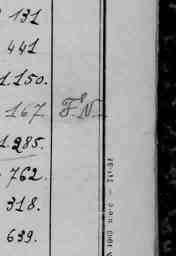 131
441
1.150.
167 F.N.
1.285.
762.
318.
639.